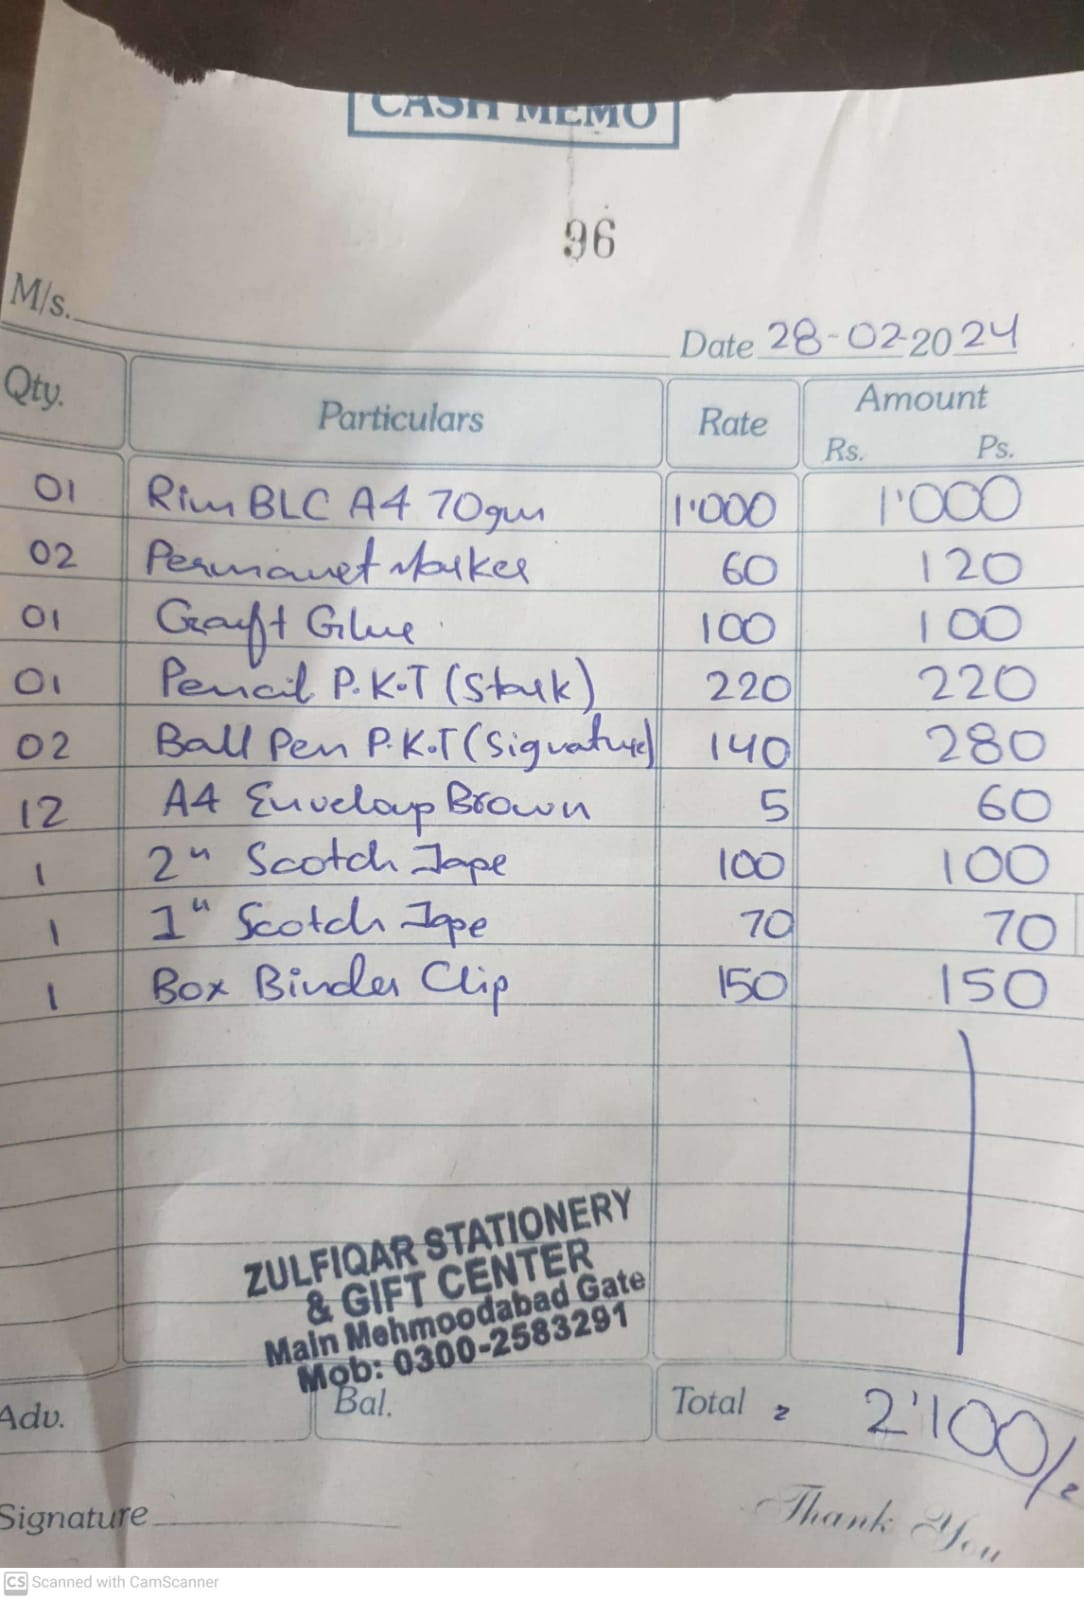 CASH MEMO
96
M/s.
Date 28-02-2024
Qty. Particulars Rate Amount
Rs. Ps.
01 Rim BLC A4 70gm 1'000 1'000
02 Permanet Marker 60 120
01 Graft Glue 100 100
01 Pencil P.K.T (Stark) 220 220
02 Ball Pen P.K.T (Signature) 140 280
12 A4 Envelop Brown 5 60
1 2" Scotch Tape 100 100
1 1" Scotch Tape 70 70
1 Box Binder Clip 150 150
ZULFIQAR STATIONERY
& GIFT CENTER
Main Mehmoodabad Gate
Mob: 0300-2583291
Adv. Bal. Total = 2'100/=
Signature
Thank You
CS Scanned with CamScanner